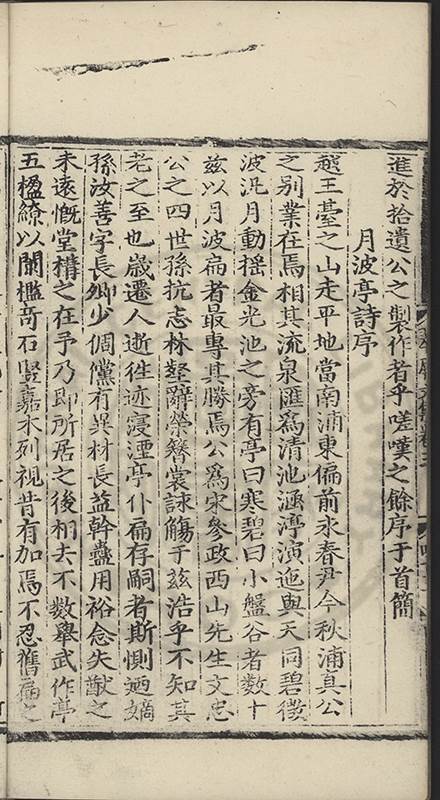 進於拾遺公之製作者乎嗟嘆之餘序于首簡
月波亭詩序
越王臺之山走平地當南浦東偏前永春尹今秋浦真公
之别業在焉相其流泉匯為清池涵渟演迤與天同碧微
波汎月動搖金光池之旁有亭曰寒碧曰小盤谷者數十
兹以月波扁者最專其勝焉公為宋參政西山先生文忠
公之四世孫抗志林壑辭榮簪裳詠觴于兹浩乎不知其
老之至也歲遷人逝徃迹寖湮亭仆扁存嗣者斯惻廼嫡
孫汝善字長卿少倜儻有異材長益幹蠱用裕念先猷之
未遠慨堂構之在予乃即所居之後相去不數舉武作亭
五楹繚以闌檻奇石竪嘉木列視昔有加焉不忍舊扁之